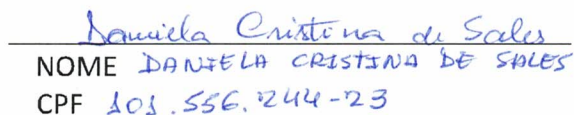 Daniella Cristina de Sales
NOME DANIELA CRISTINA DE SALES
CPF 101.556.244-23